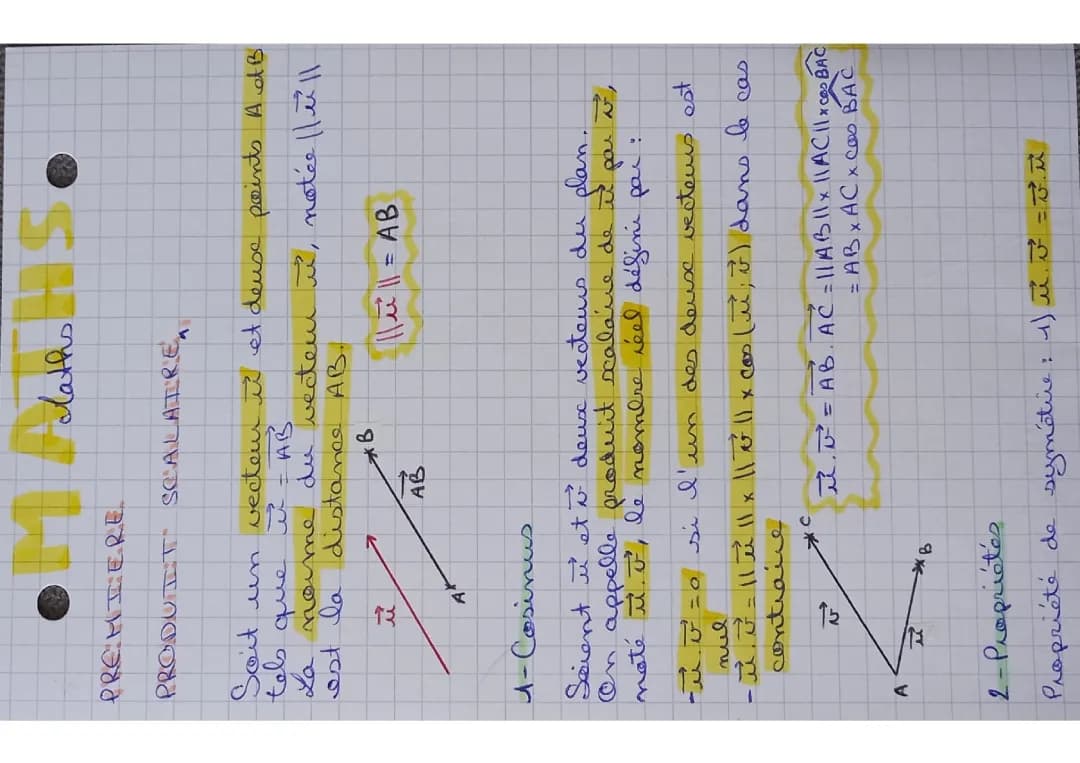 MATHS
Maths
PREMIERE
PRODUIT SCALAIRE
Soit un vecteur u⃗ et deux points A et B
tels que u⃗ = AB⃗
La norme du vecteur u⃗, notée ||u⃗||
est la distance AB.
||u⃗|| = AB
u⃗
A
AB⃗
B
1-Cosinus
Soient u⃗ et v⃗ deux vecteurs du plan.
On appelle produit scalaire de u⃗ par v⃗,
noté u⃗.v⃗, le nombre réel défini par :
-u⃗.v⃗=0 si l'un des deux vecteurs est
nul
-u⃗.v⃗ = ||u⃗|| x ||v⃗|| x cos (u⃗; v⃗) dans le cas
contraire
A
v⃗
C
u⃗
B
u⃗.v⃗ = AB⃗.AC⃗ = ||AB|| x ||AC|| x cos BAC̑
= AB x AC x cos BAC̑
2-Propriétés
Propriété de symétrie : 1) u⃗.v⃗ = v⃗.u⃗